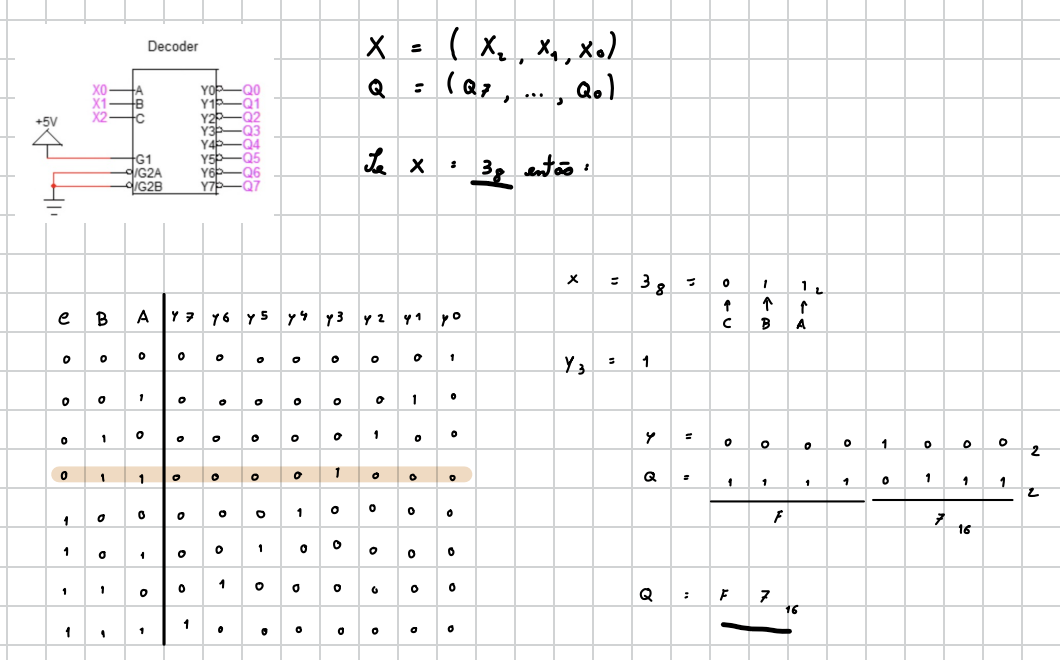 Decoder
X0 A Y0 Q0
X1 B Y1 Q1
X2 C Y2 Q2
Y3 Q3
+5V
Y4 Q4
G1 Y5 Q5
/G2A Y6 Q6
/G2B Y7 Q7
X = ( X₂ , X₁ , X₀ )
Q = ( Q7 , ... , Q₀ )
Se X = 3₈ então :
C B A Y7 Y6 Y5 Y4 Y3 Y2 Y1 Y0
0 0 0 0 0 0 0 0 0 0 1
0 0 1 0 0 0 0 0 0 1 0
0 1 0 0 0 0 0 0 1 0 0
0 1 1 0 0 0 0 1 0 0 0
1 0 0 0 0 0 1 0 0 0 0
1 0 1 0 0 1 0 0 0 0 0
1 1 0 0 1 0 0 0 0 0 0
1 1 1 1 0 0 0 0 0 0 0
X = 3₈ = 0 1 1₂
C B A
Y₃ = 1
Y = 0 0 0 0 1 0 0 0 ₂
Q = 1 1 1 1 0 1 1 1 ₂
F 7 ₁₆
Q = F 7 ₁₆